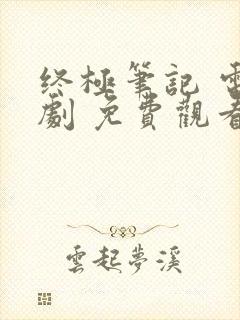 终極筆記 電
劇 免費觀看
雲起夢溪